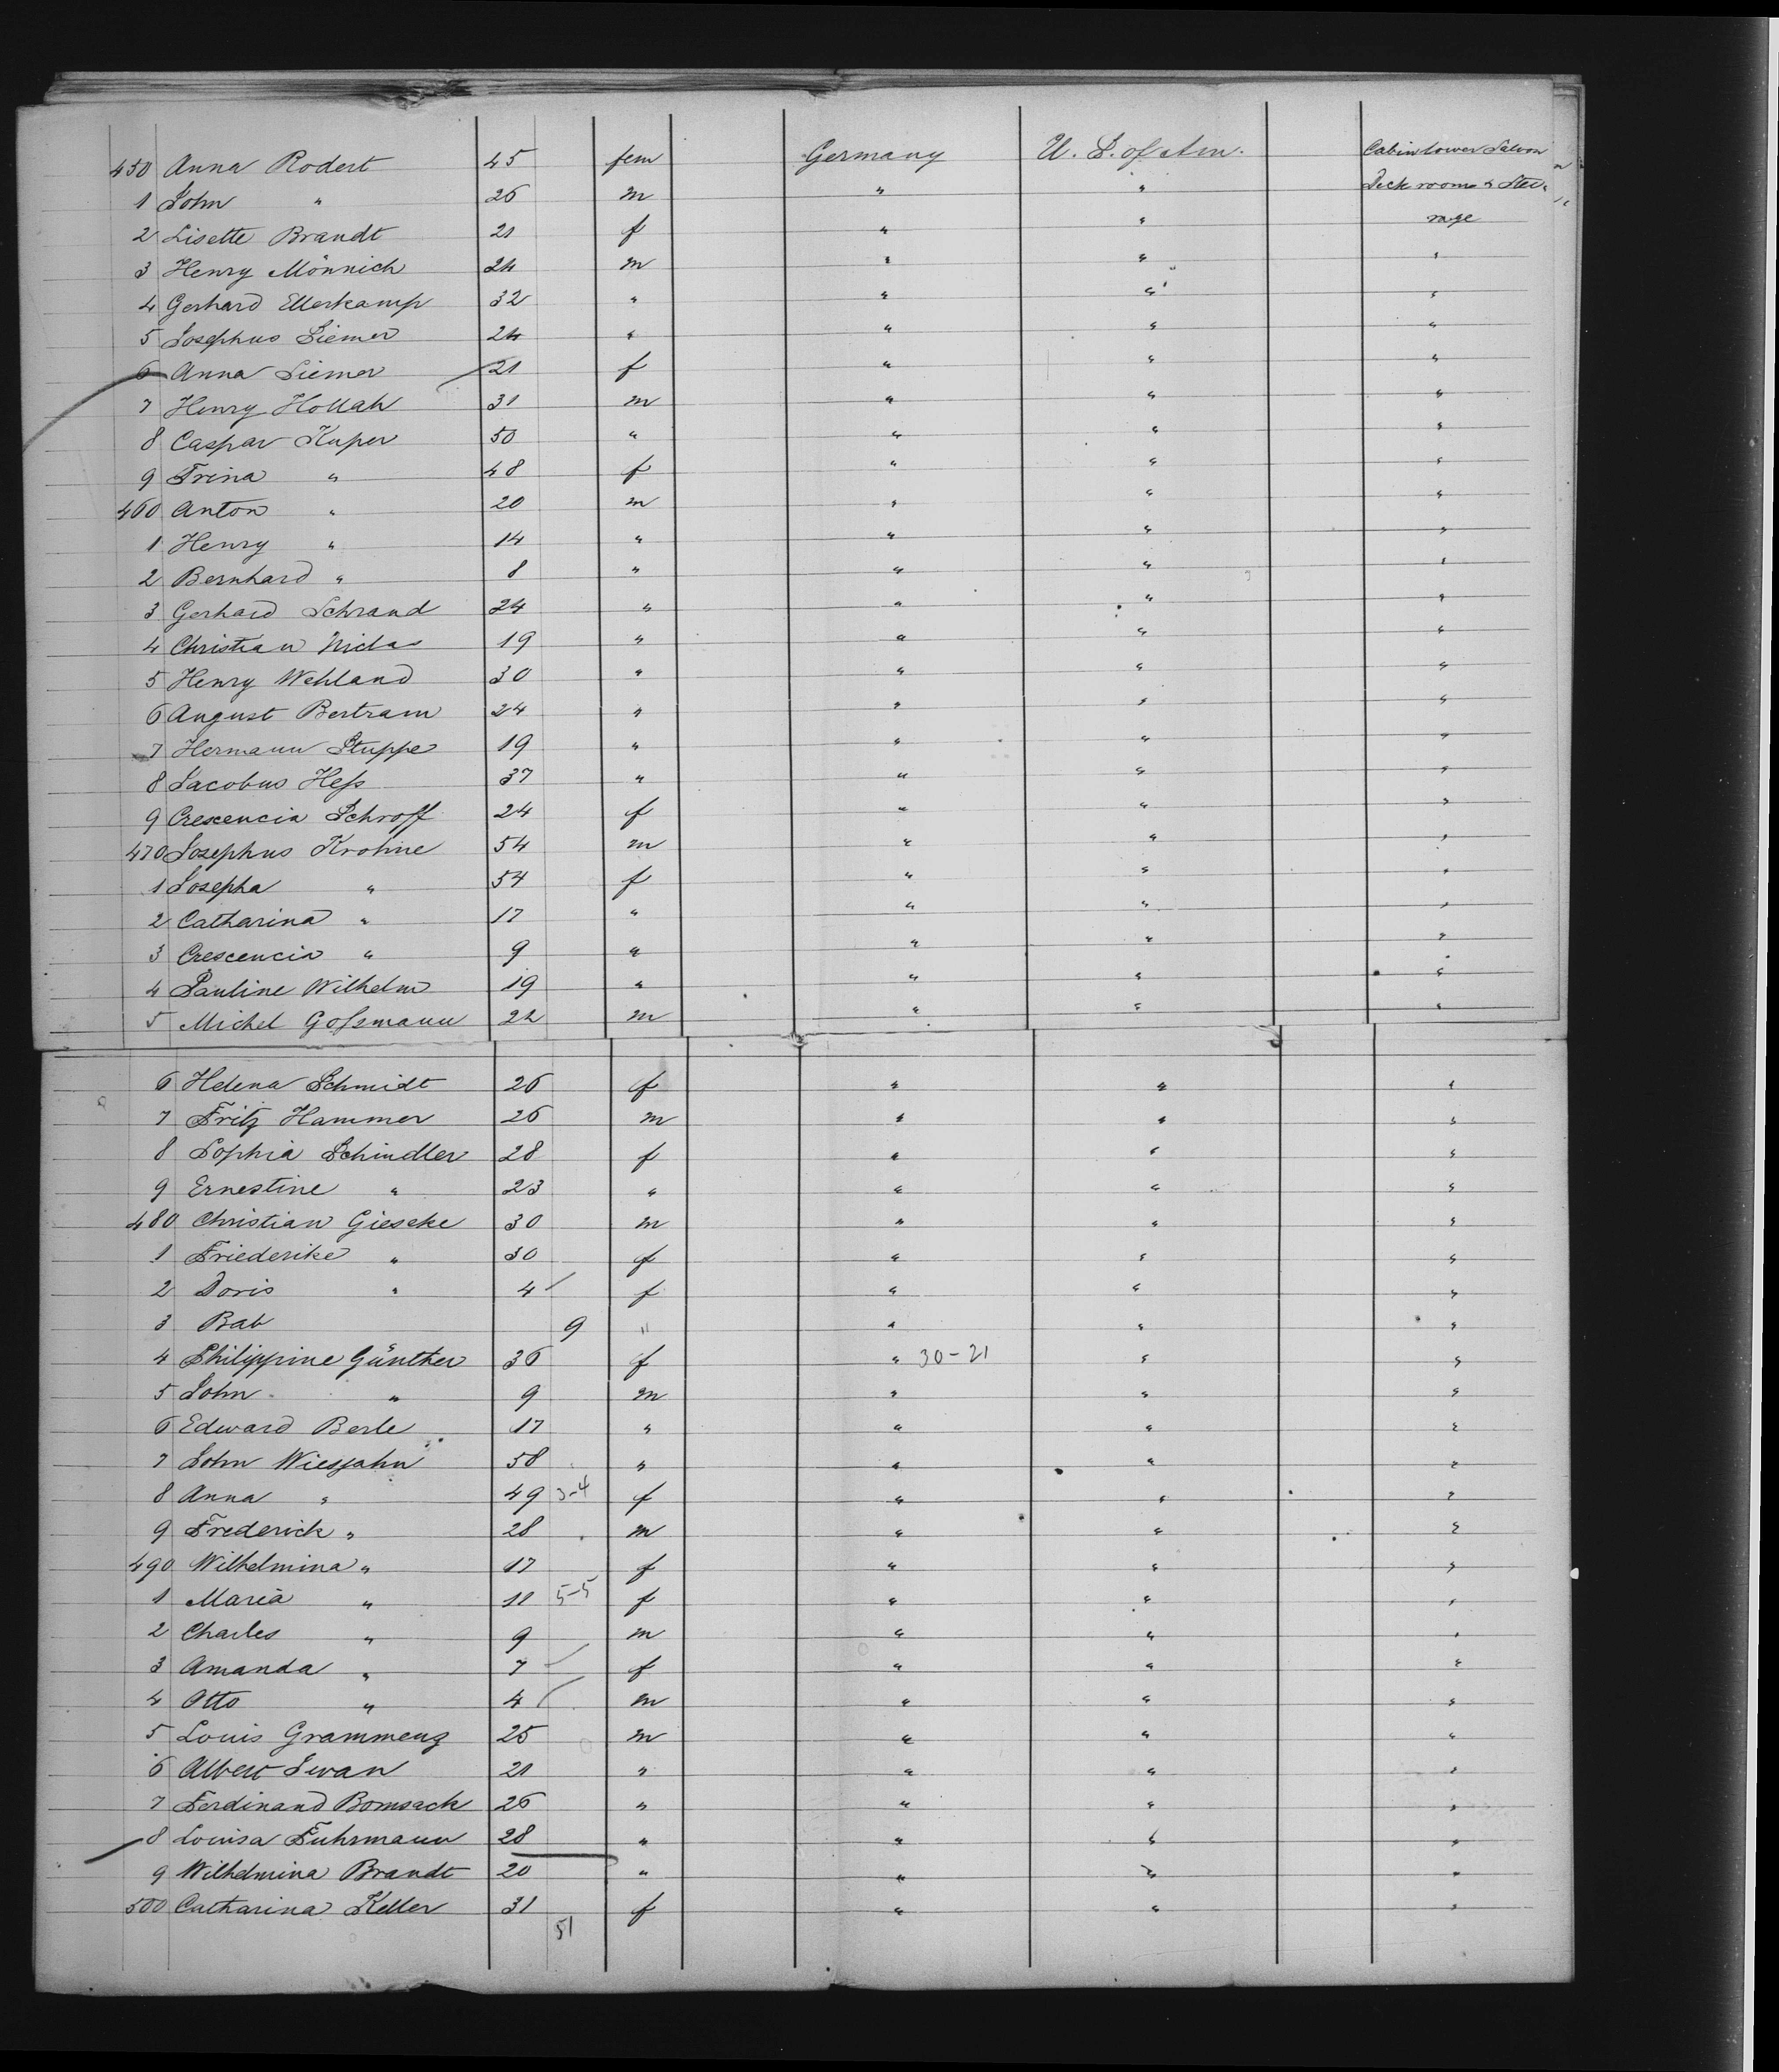 450 Anna Rodert 45 fem Germany U. S. of Am. Cabin lower Saloon
1 John " 26 m " " Deck rooms & Stee-
2 Lisette Brandt 21 f " " rage
3 Henry Mönnich 24 m " " "
4 Gerhard Ellerkamp 32 " " " "
5 Josephus Siemer 24 " " " "
6 Anna Siemer 21 f " " "
7 Henry Hollah 31 m " " "
8 Caspar Kuper 50 " " " "
9 Trina " 48 f " " "
460 Anton " 20 m " " "
1 Henry " 14 " " " "
2 Bernhard " 8 " " " "
3 Gerhard Schrand 24 " " " "
4 Christian Niclas 19 " " " "
5 Henry Wehland 30 " " " "
6 August Bertram 24 " " " "
7 Hermann Stuppe 19 " " " "
8 Jacobus Heſs 37 " " " "
9 Crescencia Schroff 24 f " " "
470 Josephus Krohne 54 m " " "
1 Josepha " 54 f " " "
2 Catharina " 17 " " " "
3 Crescencia " 9 " " " "
4 Pauline Wilhelm 19 " " " "
5 Michel Goſsmann 22 m " " "
6 Helena Schmidt 26 f " " "
7 Fritz Hammer 26 m " " "
8 Sophia Schindler 28 f " " "
9 Ernestine " 23 " " " "
480 Christian Gieseke 30 m " " "
1 Friederike " 30 f " " "
2 Doris " 4 f " " "
3 Bab 9 " " " "
4 Philippine Günther 36 f " 30-21 " "
5 John " 9 m " " "
6 Edward Berle 17 " " " "
7 John Wiesjahn 58 " " " "
8 Anna " 49 3-4 f " " "
9 Frederick " 28 m " " "
490 Wilhelmina " 17 f " " "
1 Maria " 11 5-5 f " " "
2 Charles " 9 m " " "
3 Amanda " 7 f " " "
4 Otto " 4 m " " "
5 Louis Grammeng 25 m " " "
6 Albert Iwan 21 " " " "
7 Ferdinand Bomsack 26 " " " "
8 Louisa Fuhrmann 28 " " " "
9 Wilhelmina Brandt 20 " " " "
500 Catharina Keller 31 f " " "
51